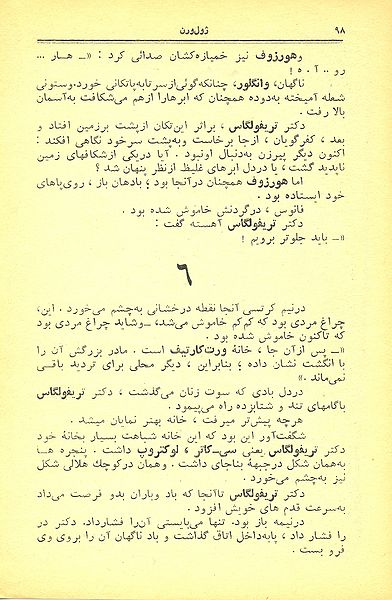 ۹۸
ژول‌ورن
وهورزوف نیز خمیازه‌کشان صدائی کرد : «ـ هـار ...
رو .. آ . ه !
ناگهان، وانگلور، چنانکه‌گوئی‌از‌سر‌تا‌به‌پا‌تکانی خورد.وستونی
شعله آمیخته به‌دوده همچنان که ابرها‌را از‌هم می‌شکافت به‌آسمان
بالا رفت .
دکتر تریفولگاس ، براثر این‌تکان از‌پشت بر‌زمین افتاد و
بعد ، کفرگویان ، از‌جا بر‌خاست و‌به‌پشت سر‌خود نگاهی افکند :
اکنون دیگر پیرزن به‌دنبال اونبود . آیا در‌یکی از‌شکافهای زمین
ناپدید گشت، یا در‌دل ابرهای غلیظ از‌نظر پنهان شد ؟
اما هورزوف همچنان در‌آنجا بود؛ بادهان باز ، روی‌پاهای
خود ایستاده بود .
فانوس ، در‌گردنش خاموش شده بود .
دکتر تریفولگاس آهسته گفت :
«ـ باید جلوتر برویم !
۶
در‌نیم کرتسی آنجا نقطه درخشانی به‌چشم می‌خورد . این،
چراغ مردی بود که کم‌کم خاموش می‌شد، ـ وشاید چراغ مردی بود
که تاکنون خاموش شده بود .
«ـ پس از‌آن جا ، خانهٔ ورت‌کارتیف است . مادر بزرگش آن را
با انگشت نشان داده ؛ بنابراین ، دیگر محلی برای تردید باقـی
نمی‌ماند .»
در‌دل بادی که سوت زنان می‌گذشت ، دکتر تریفولگاس
با‌گامهای تند و شتابزده راه می‌پیمود .
هرچه پیش‌تر میرفت ، خانه بهتر نمایان میشد .
شگفت‌آور این بود که این خانه شباهت بسیار بخانهٔ خود
دکتر تریفولگاس یعنی سی‌ـ‌کاتر ، لوکتروپ داشت . پنجره هـا
به‌همان شکل در‌جبههٔ بناجای داشت . وهمان در‌کوچك هلالی شکل
نیز به‌چشم می‌خورد .
دکتر تریفولگاس تا‌آنجا که باد وباران بدو فرصت می‌داد
به‌سرعت قدم های خویش افزود .
در‌نیمه باز بود. تنها می‌بایستی آن‌را فشارداد. دکتر در
را فشار داد ، پابه‌داخل اتاق گذاشت و باد ناگهان آن را بروی وی
فرو بست .